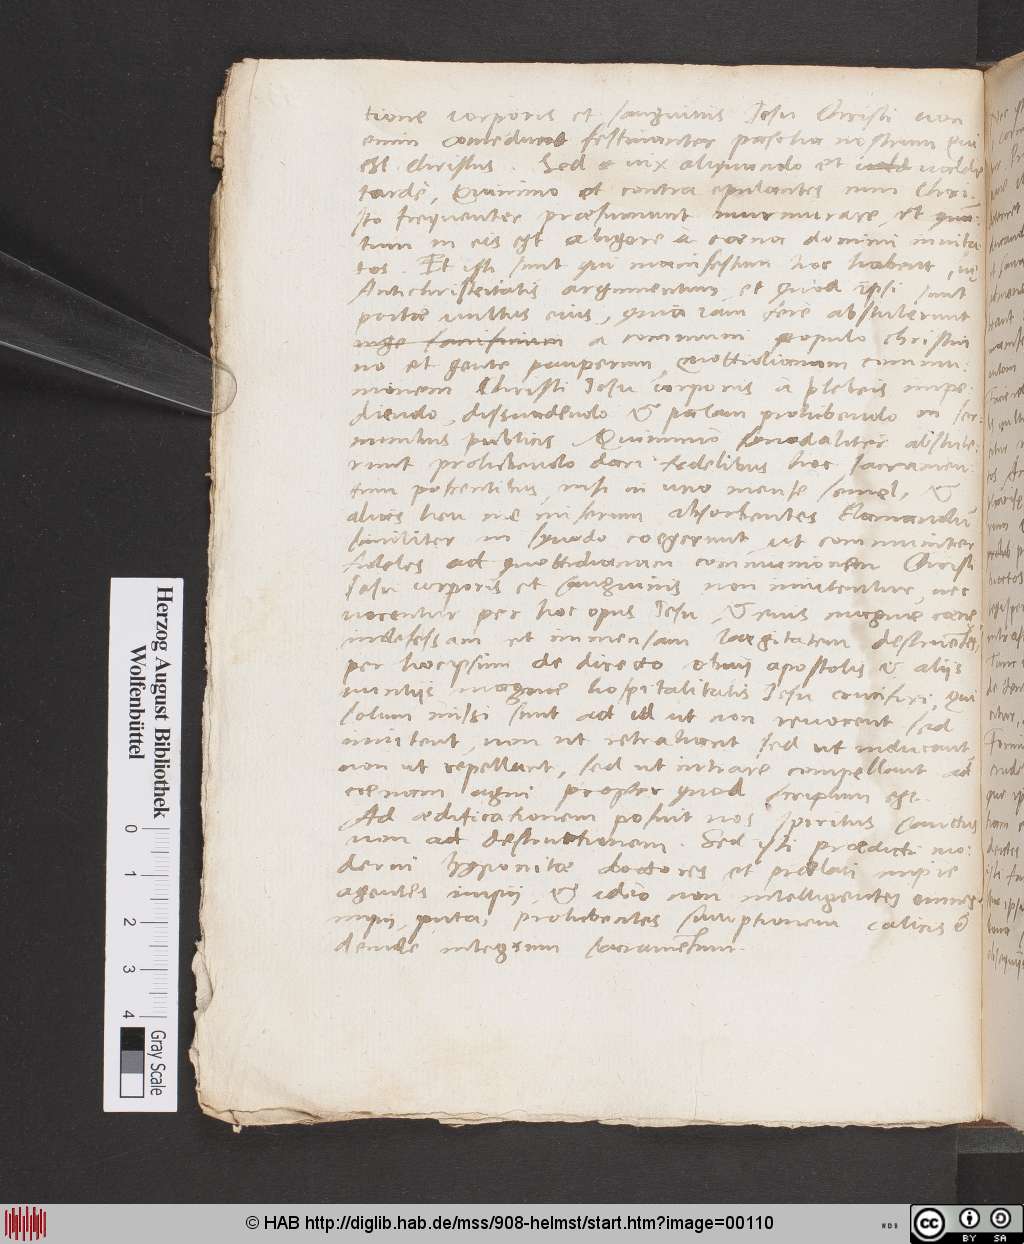 tione corporis et sanguinis Jesu Christi non
enim comedunt festinanter pascha nostrum qui
est Christus. Sed vix aliquando et valde
tardè, Quinimo et contra epulantes cum Chri-
sto frequenter præsumunt murmurare, et quā-
tum in eis est abigere à coena domini invita-
tos. Et isti sunt qui manifestum hoc habent,
Antichristeitatis argumentum, et quod ipsi sunt
portæ eius, quia iam ferè abstulerunt
a communi populo christia
no et gente pauperum, quottidianam commu-
nionem Christi Jesu corporis a plebeis impe-
diendo, dissuadendo & palam prohibendo in ser-
monibus publicis. Quinimmo synodaliter abstule-
runt prohibendo dari fidelibus hoc sacramen-
tum poscentibus, nisi in uno mense semel, &
alias heu me miserum absorbentes
similiter in synodo coegerunt ut communiter
fideles ad quottidianam communionem Christi
Jesu corporis et sanguinis non invitentur, nec
vocentur per hoc opus Jesu, & eius magnæ cœnæ
indefessam et immensam largitatem destruentes,
per hocipsum de directo obvij apostolis & aliis
nuntijs magnæ hospitalitatis Jesu crucifixi, qui
solum missi sunt ad id ut non revocent sed
invitent, non ut retrahant sed ut inducant
non ut repellant, sed ut intrare compellant ad
coenam agni propter quod scriptum est.
Ad ædificationem posuit nos spiritus sanctus
non ad destructionem. Sed isti prædicti mo-
derni doctores et prælati impie
agentes impij, & ideo non intelligentes omnes
impij, puta, prohibentes sumptionem calicis &
deinde integrum sacramentum.
Herzog August Bibliothek
Wolfenbüttel
0 1 2 3 4
Gray Scale
© HAB http://diglib.hab.de/mss/908-helmst/start.htm?image=00110
WDB
cc BY SA